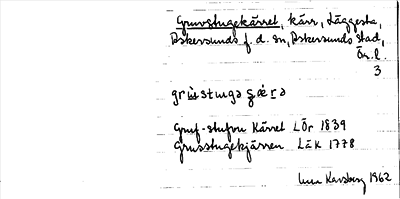 Gruvstugekärret, kärr, Läggesta,
Askersunds f. d. sn, Askersunds stad,
Ör. l.
3
Gruf-stufvu Kärret LÖr 1839
Grufstugekjärren LÄK 1778
Karsberg 1962